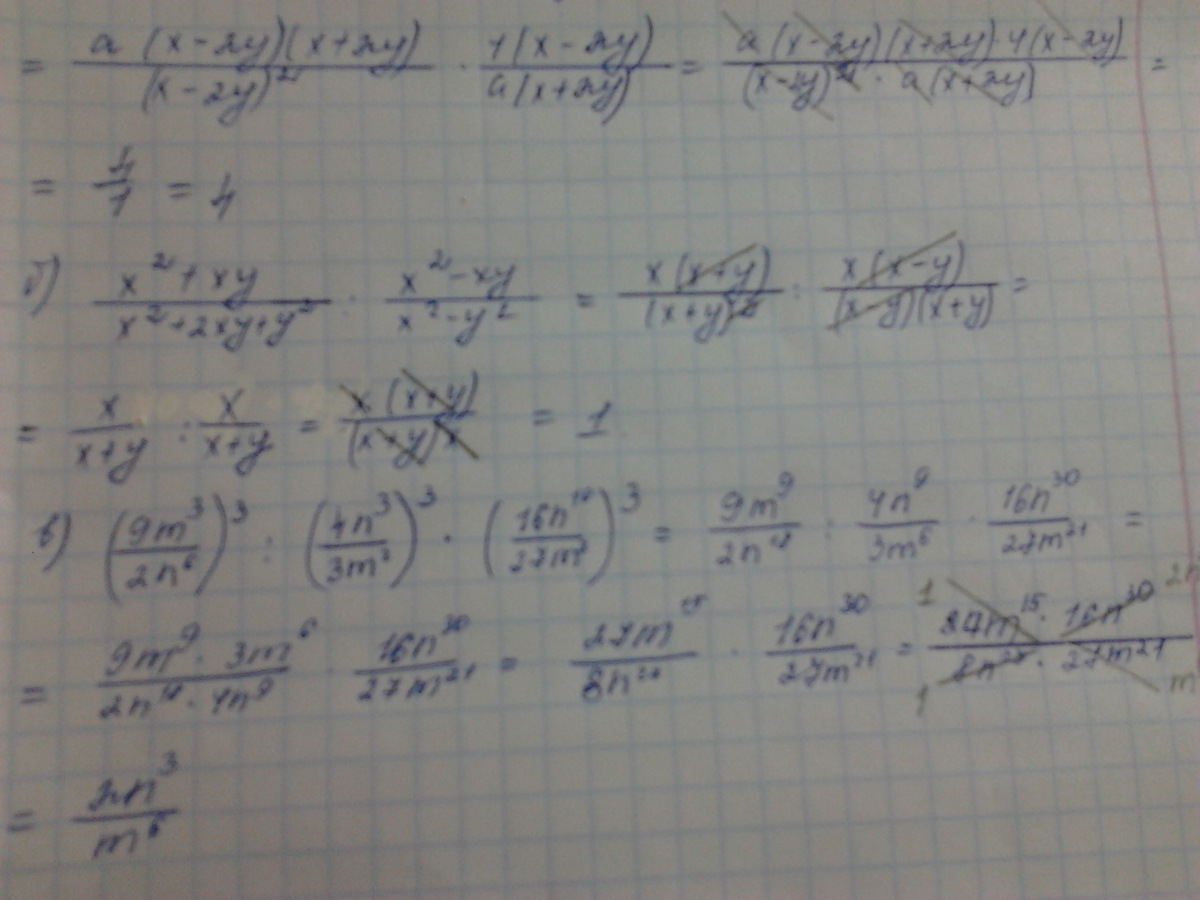 = a(x-2y)(x+2y)/(x-2y)² · 4(x-2y)/a(x+2y) = a(x-2y)(x+2y)·4(x-2y)/(x-2y)²·a(x+2y) =
= 4/1 = 4
б) x²+xy/x²+2xy+y² : x²-xy/x²-y² = x(x+y)/(x+y)² : x(x-y)/(x-y)(x+y) =
= x/x+y : x/x+y = x(x+y)/(x+y)x = 1
в) (9m³/2n⁶)³ : (4n³/3m²)³ · (16n¹⁰/27m⁷)³ = 9m⁹/2n¹⁸ : 4n⁹/3m⁶ · 16n³⁰/27m²¹ =
= 9m⁹·3m⁶/2n¹⁸·4n⁹ · 16n³⁰/27m²¹ = 27m¹⁵/8n²⁷ · 16n³⁰/27m²¹ = 27m¹⁵·16n³⁰/8n²⁷·27m²¹
= 2n³/m⁶